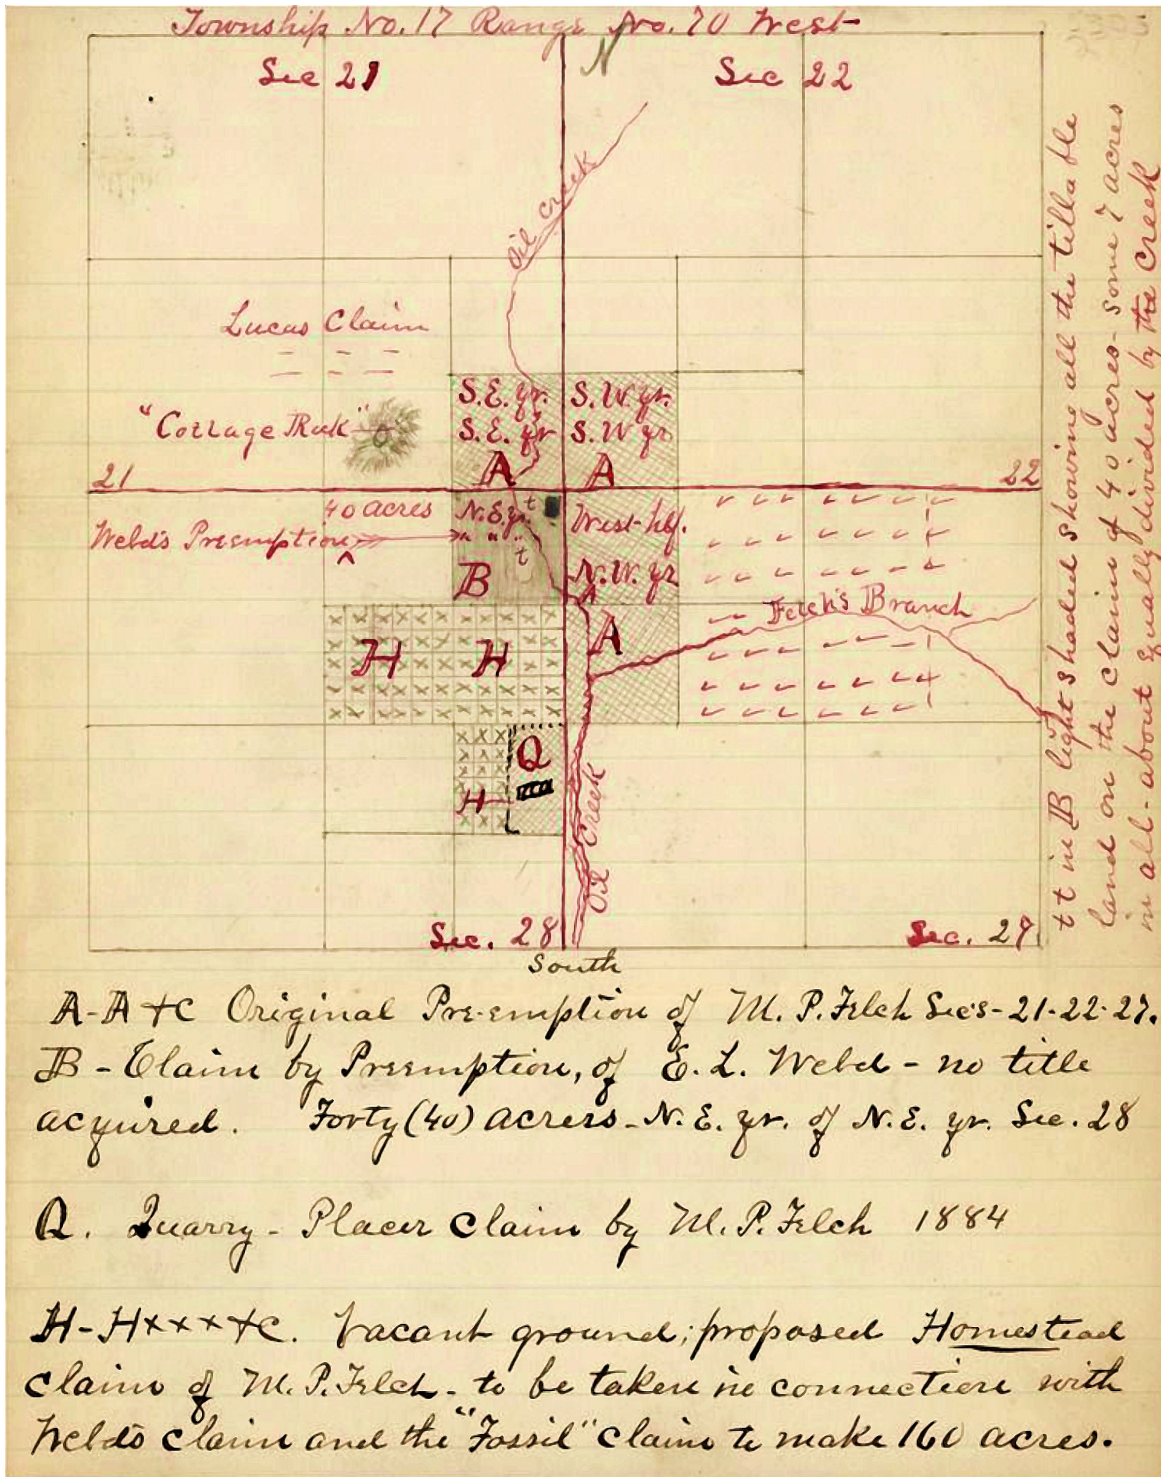 Township No. 17 Range No. 70 West
N
Sec 21
Sec 22
Oil Creek
Lucas Claim
"Cottage Rock"
S.E. qr.
S.E. qr
A
S.W qr.
S.W qr
A
21
22
40 acres
Webd's Preemption
N.E. qr.
" " "
t
t
B
West-hlf.
N.W. qr
A
Felch's Branch
H H
A
Q
H
Oil Creek
Sec. 28
Sec. 27
South
t t in B light shaded showing all the tillable
land on the claim of 40 acres - some 7 acres
in all - about equally divided by the creek
A-A+C Original Pre-emption of M. P. Felch Sec's - 21-22-27.
B - Claim by Preemption, of E. L. Webd - no title
acquired. Forty (40) acrers - N. E. qr. of N. E. qr. Sec. 28
Q. Quarry - Placer Claim by M. P. Felch 1884
H-H x x x +c. Vacant ground; proposed Homestead
claim of M. P. Felch - to be taken in connection with
Webd's claim and the "Fossil" claim to make 160 acres.